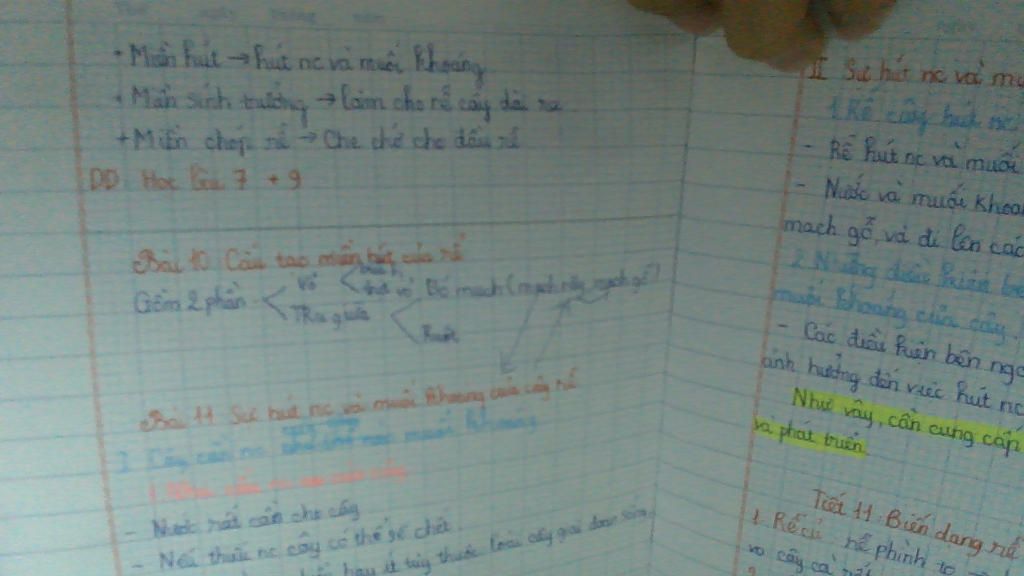 + Miền hút → hút nc và muối khoáng
+ Miền sinh trưởng → làm cho rễ cây dài ra
+ Miền chóp rễ → Che chở cho đầu rễ
DD: Học bài 7 + 9
Bài 10 Cấu tạo miền hút của rễ
Gồm 2 phần
Vỏ
thịt vỏ
Trụ giữa
Bó mạch (mạch rây, mạch gỗ)
Ruột
Bài 11 Sự hút nc và muối khoáng của cây rễ
Cây cần nc muối khoáng
- Nước rất cần cho cây
- Nếu thiếu nc cây có thể sẽ chết.
hay ít tùy thuộc loài cây giai đoạn
II Sự hút nc và
1 Rễ cây hút nc
- Rễ hút nc và muối
- Nước và muối
mạch gỗ, và đi lên các
2 Những điều kiện
muối khoáng của cây.
- Các điều kiện bên
ảnh hưởng đến việc hút nc
Như vậy, cần cung cấp
và phát triển
Tiết 11: Biến dạng rễ
1. Rễ củ: rễ phình to